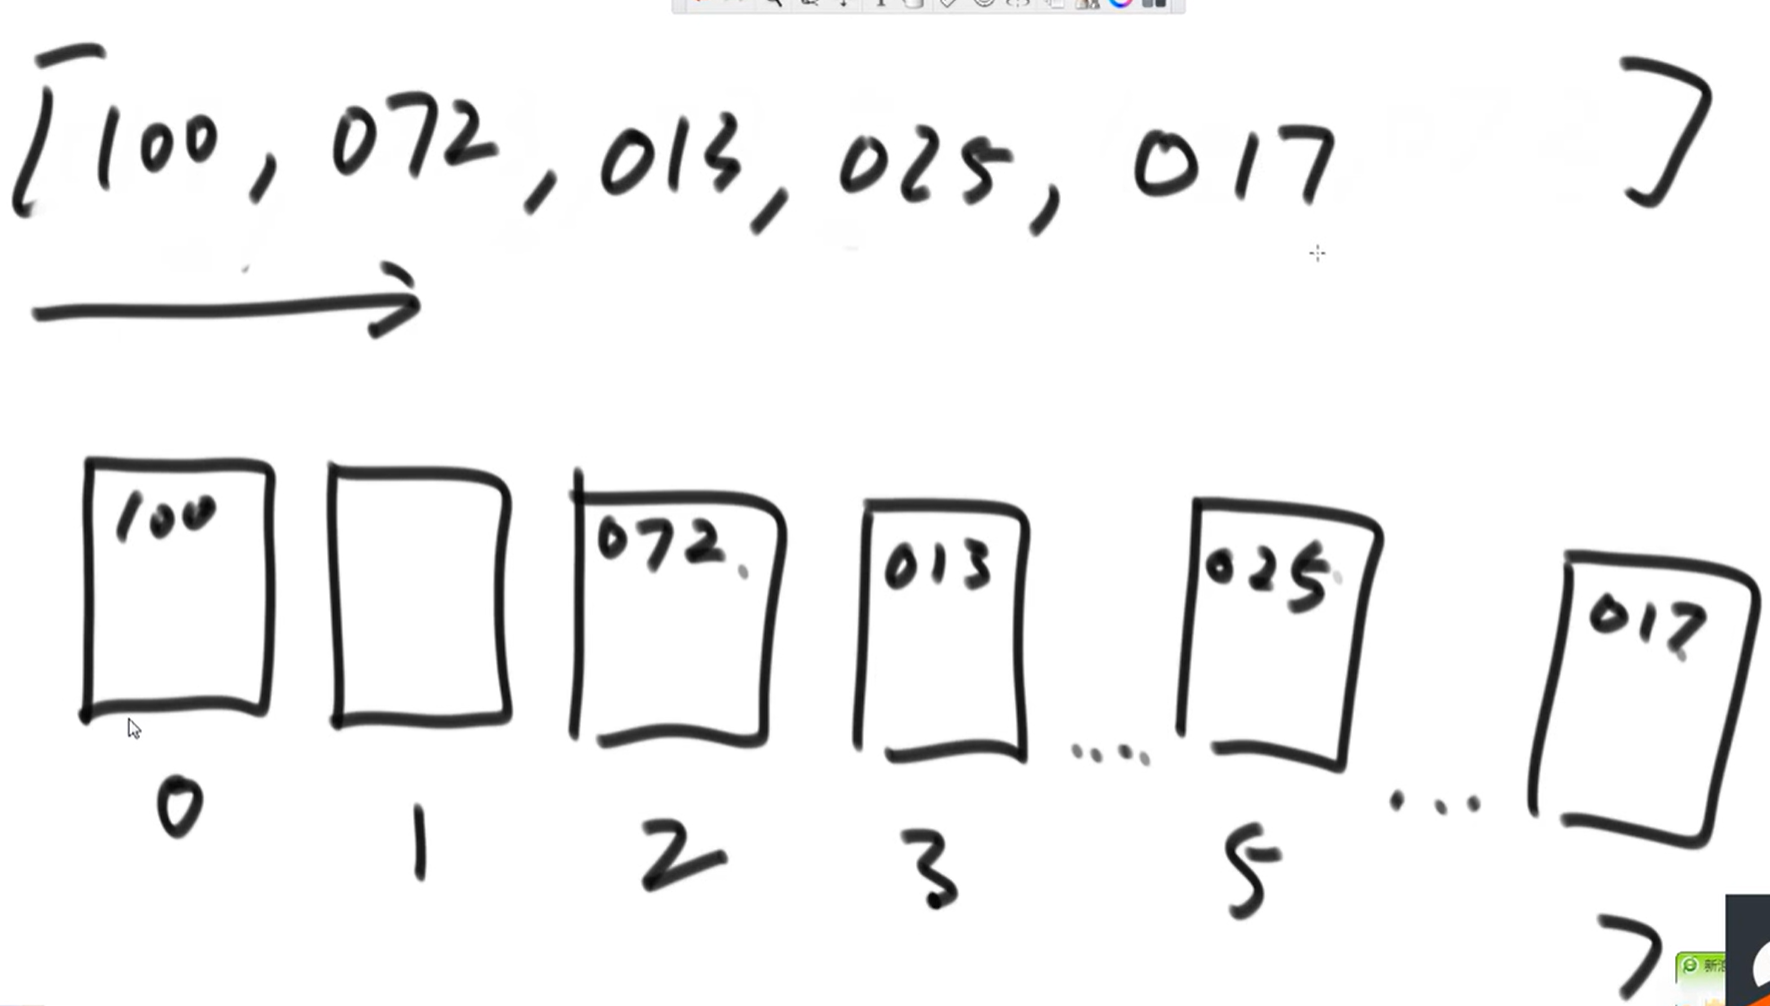 [100, 072, 013, 025, 017 ]
100 072. 013 025 017
.... ...
0 1 2 3 5 7
新浪